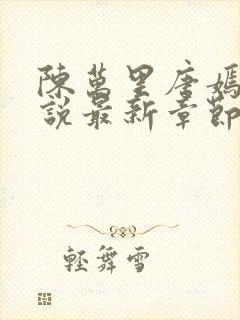 陳萬里唐嫣
說最新章節
輕舞雪